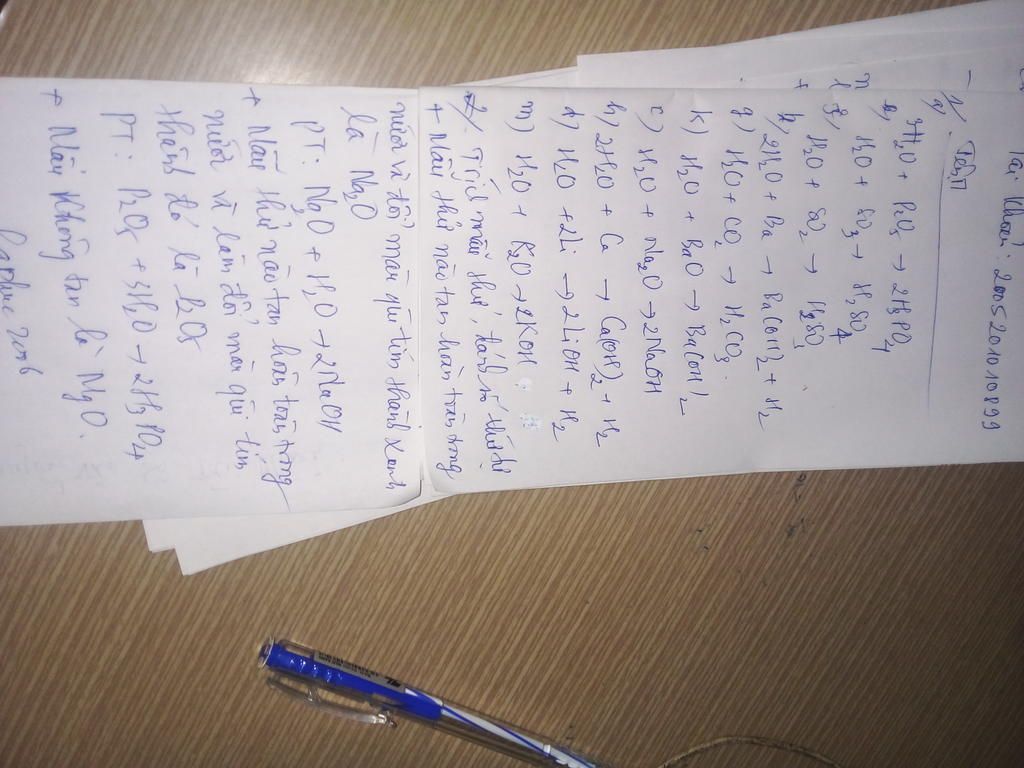 Tài khoản: 200520101010899
1/ TđpT
a) 3H2O + P2O5 → 2H3PO4
H2O + SO3 → H2SO4
H2O + SO2 → H2SO3
2H2O + Ba → Ba(OH)2 + H2
g) H2O + CO2 → H2CO3.
k) H2O + BaO → Ba(OH)2
c) H2O + Na2O → 2NaOH
h) 2H2O + Ca → Ca(OH)2 + H2
H2O + 2Li → 2LiOH + H2
m) H2O + K2O → 2KOH
2/. Trích mẫu thử, đánh số thứ tự
+ Mẫu thử nào tan hoàn toàn trong
nước và đổi màu quì tím thành xanh
là Na2O
PT: Na2O + H2O → 2NaOH
+ Mẫu thử nào tan hoàn toàn trong
nước và làm đổi màu quì tím
thành đỏ là P2O5
PT: P2O5 + 3H2O → 2H3PO4
+ Mẫu không tan là MgO.